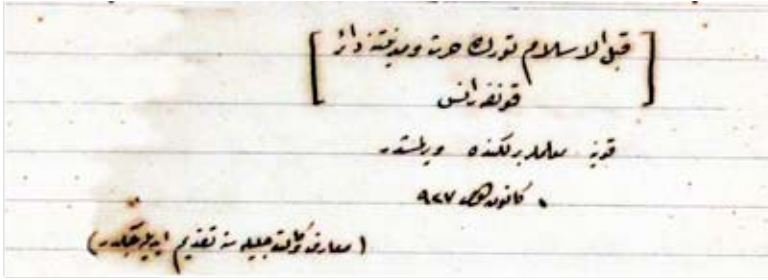 [ قبل الاسلام تورك حرث و مدنيتنه دائر
قونفرانس ]
قونيه معلملر برلكنده ويرلمشدر
كانون 927
( معارف وكالت جليله سنه تقديم ايديله جكدر )